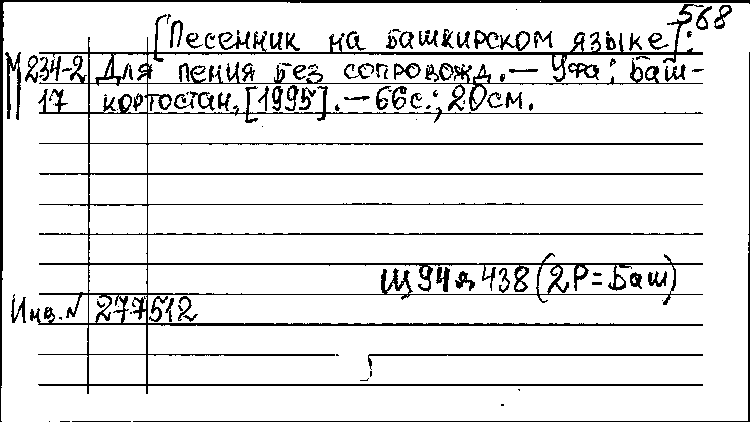 568
[Песенник на башкирском языке]:
М 234-2 Для пения без сопровожд. — Уфа: Баш-
17 кортостан, [1995]. — 66 с.; 20 см.
Щ94я438 (2Р=Баш)
Инв. № 277512